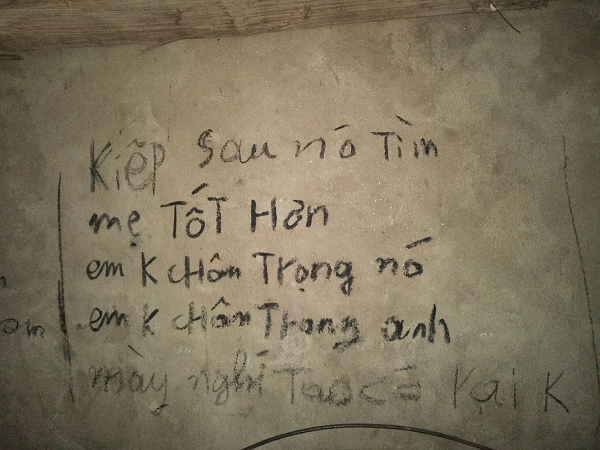 Kiẽp sau nó Tìm
mẹ TốT Hơn
em K cHôn Trọng nó
em K cHôn Trọng anh
mày nghỉ Tao K